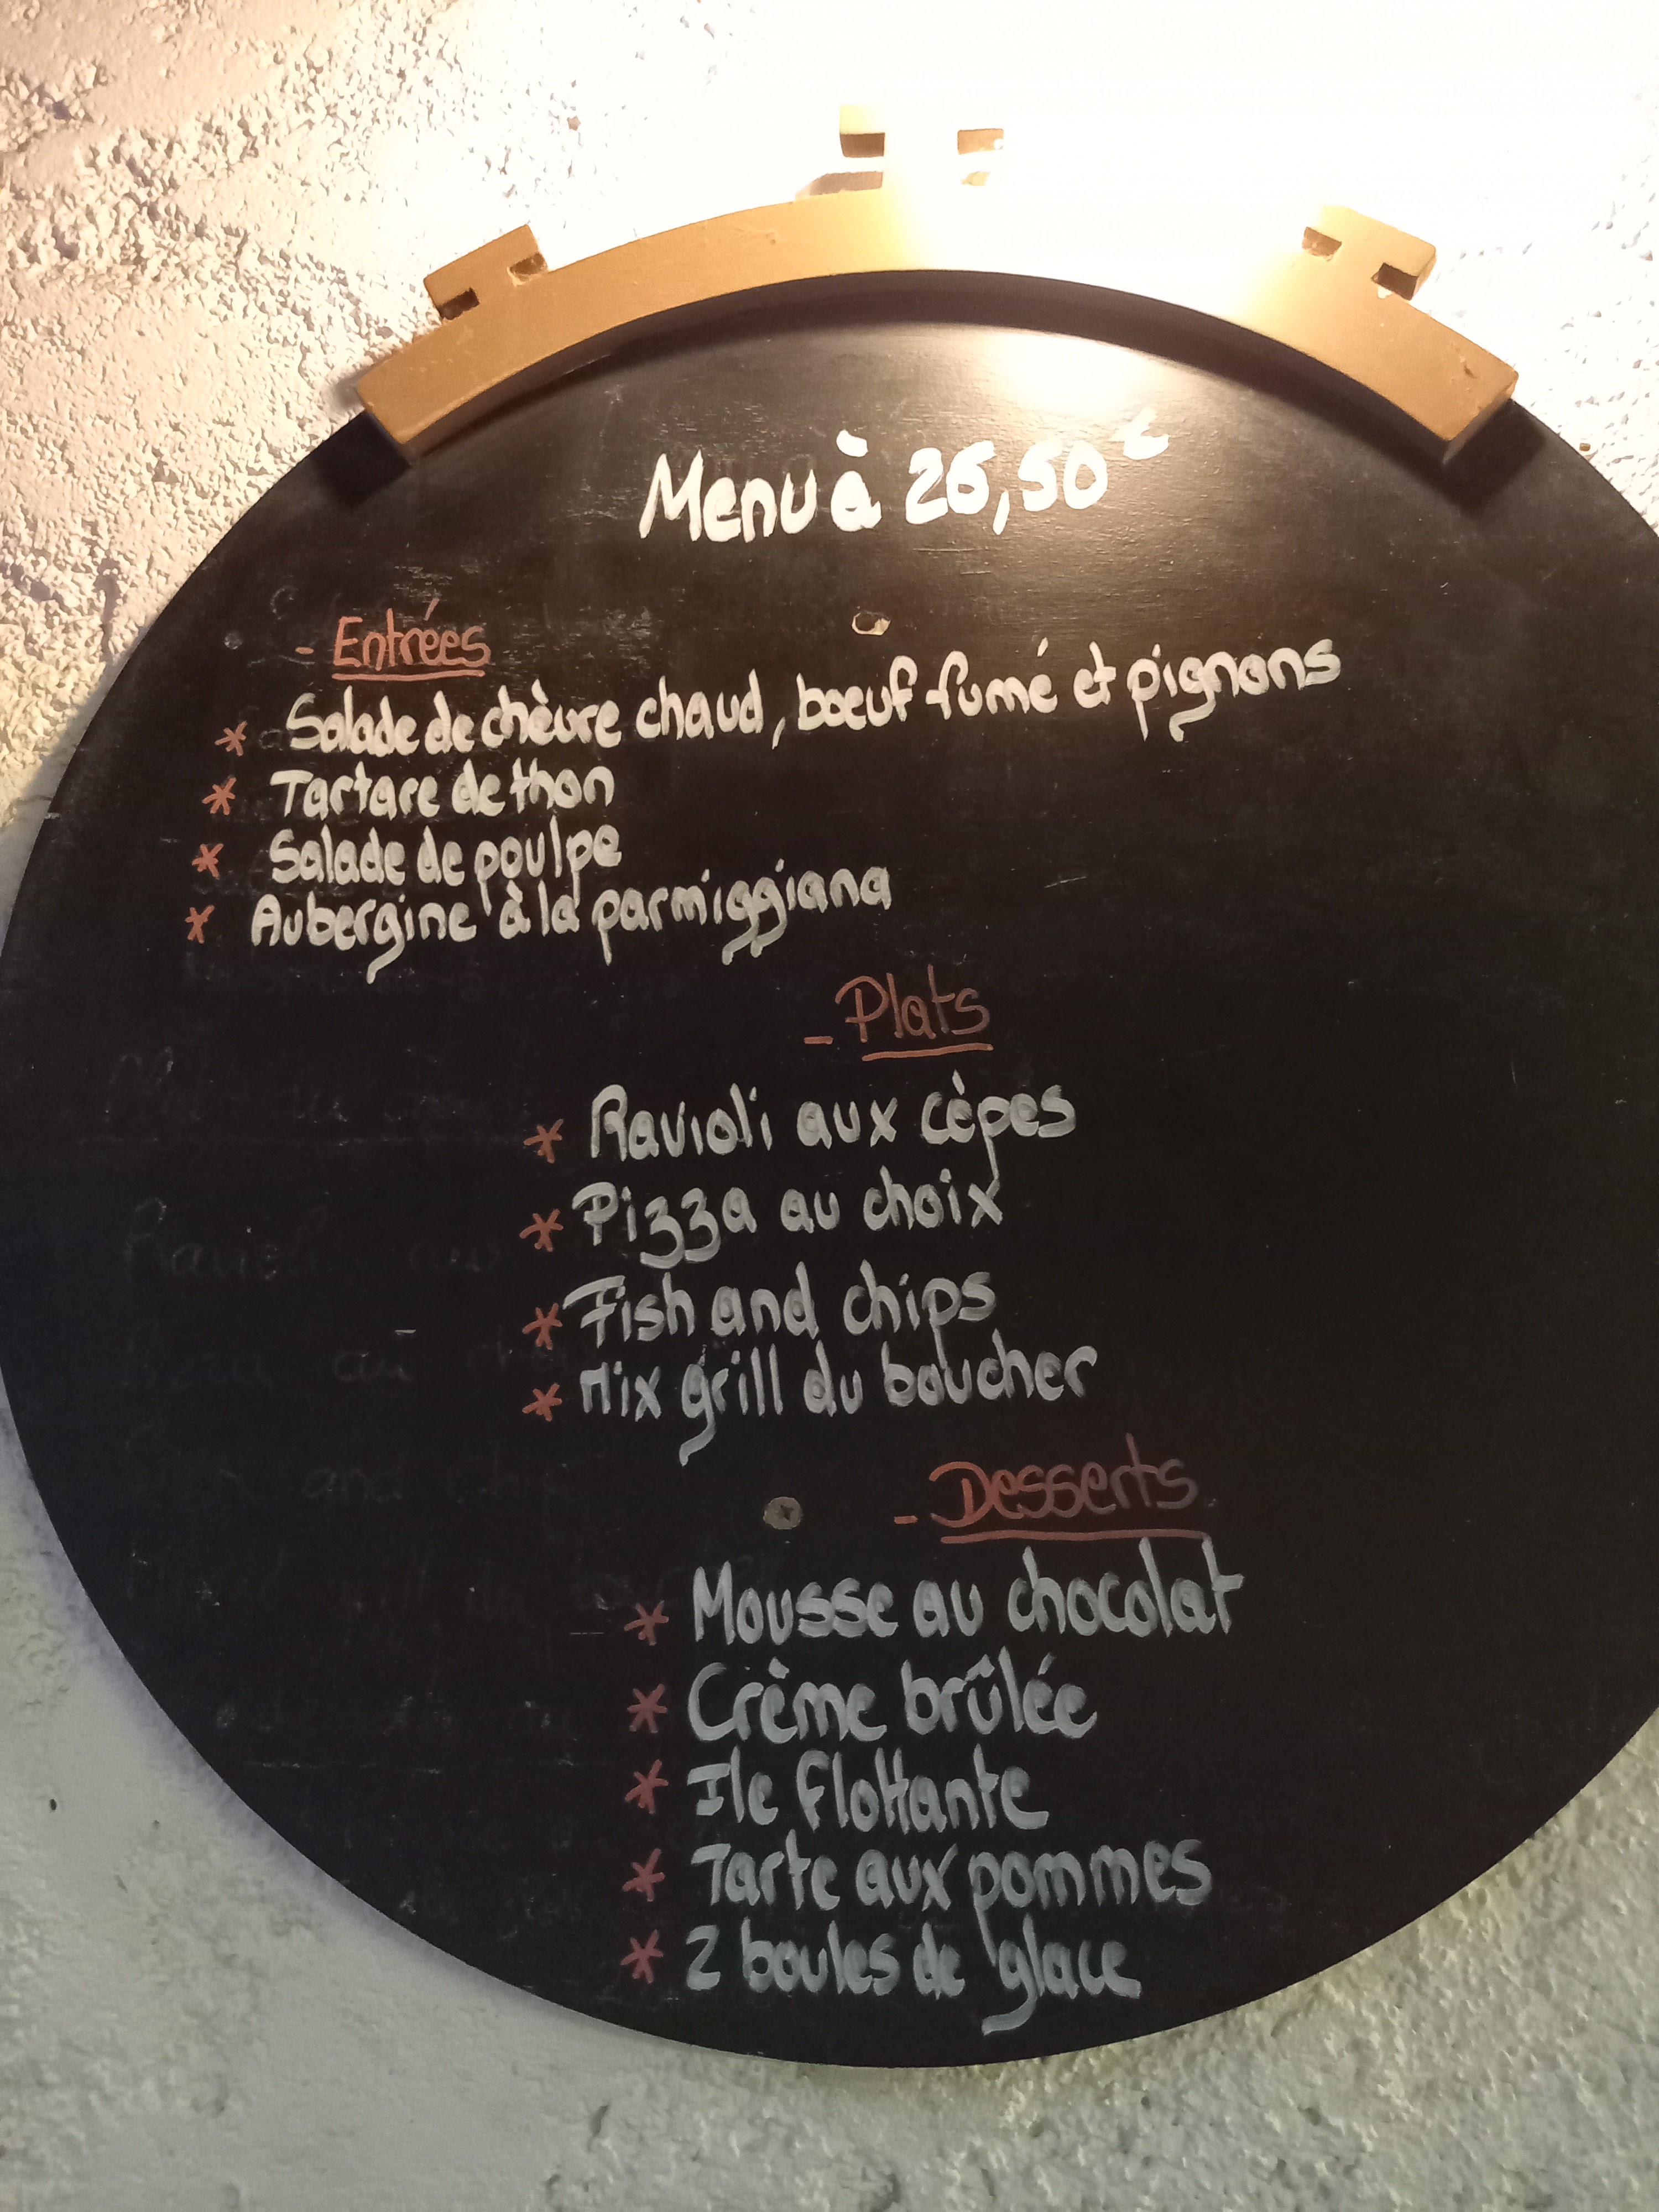 Menu à 26,50€
- Entrées
* Salade de chèvre chaud, boeuf fumé et pignons
* Tartare de thon
* Salade de poulpe
* Aubergine à la parmiggiana
- Plats
* Ravioli aux cèpes
* Pizza au choix
* Fish and chips
* Mix grill du boucher
- Desserts
* Mousse au chocolat
* Crème brûlée
* Ile flottante
* Tarte aux pommes
* 2 boules de glace